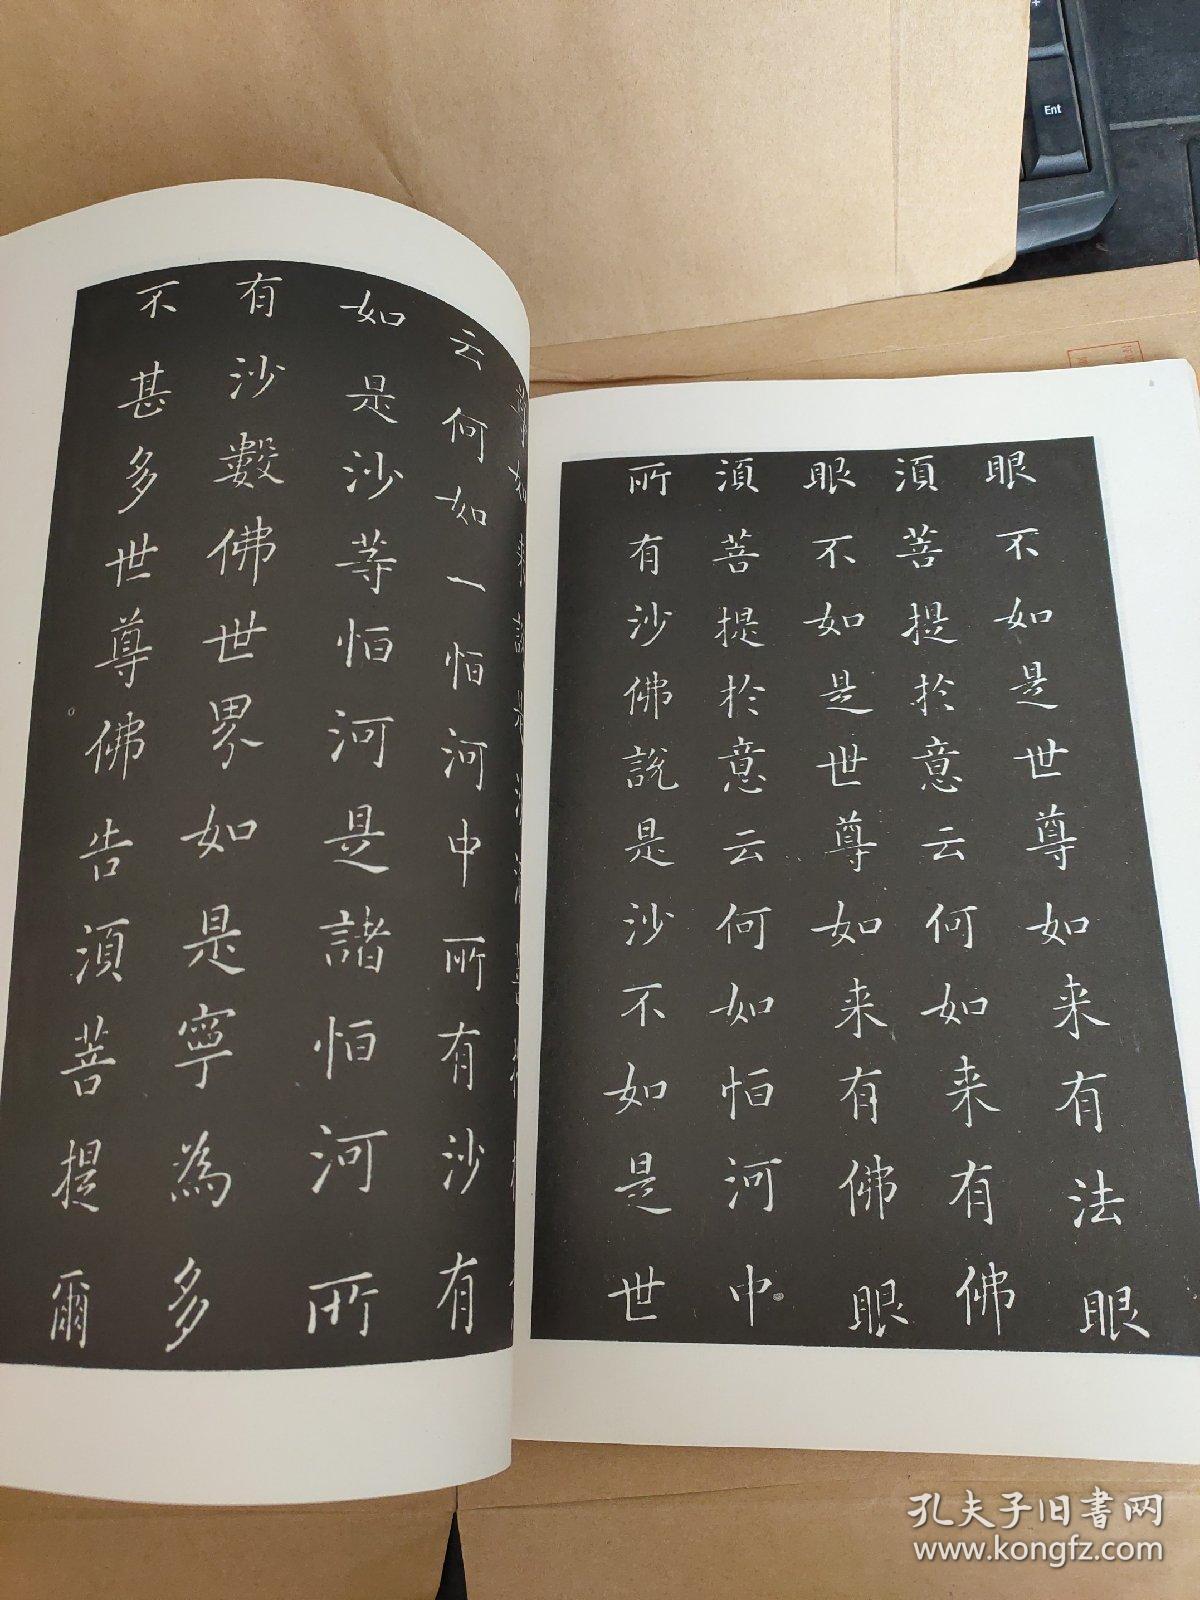 眼不如是世尊如来有法眼
須菩提於意云何如来有佛
眼不如是世尊如来有佛眼
須菩提於意云何如恒河中
所有沙佛說是沙不如是世
尊如来說是沙須菩提
云何如一恒河中所有沙有
如是沙等恒河是諸恒河所
有沙數佛世界如是寧為多
不甚多世尊佛告須菩提爾
Ent
孔夫子旧书网
www.kongfz.com